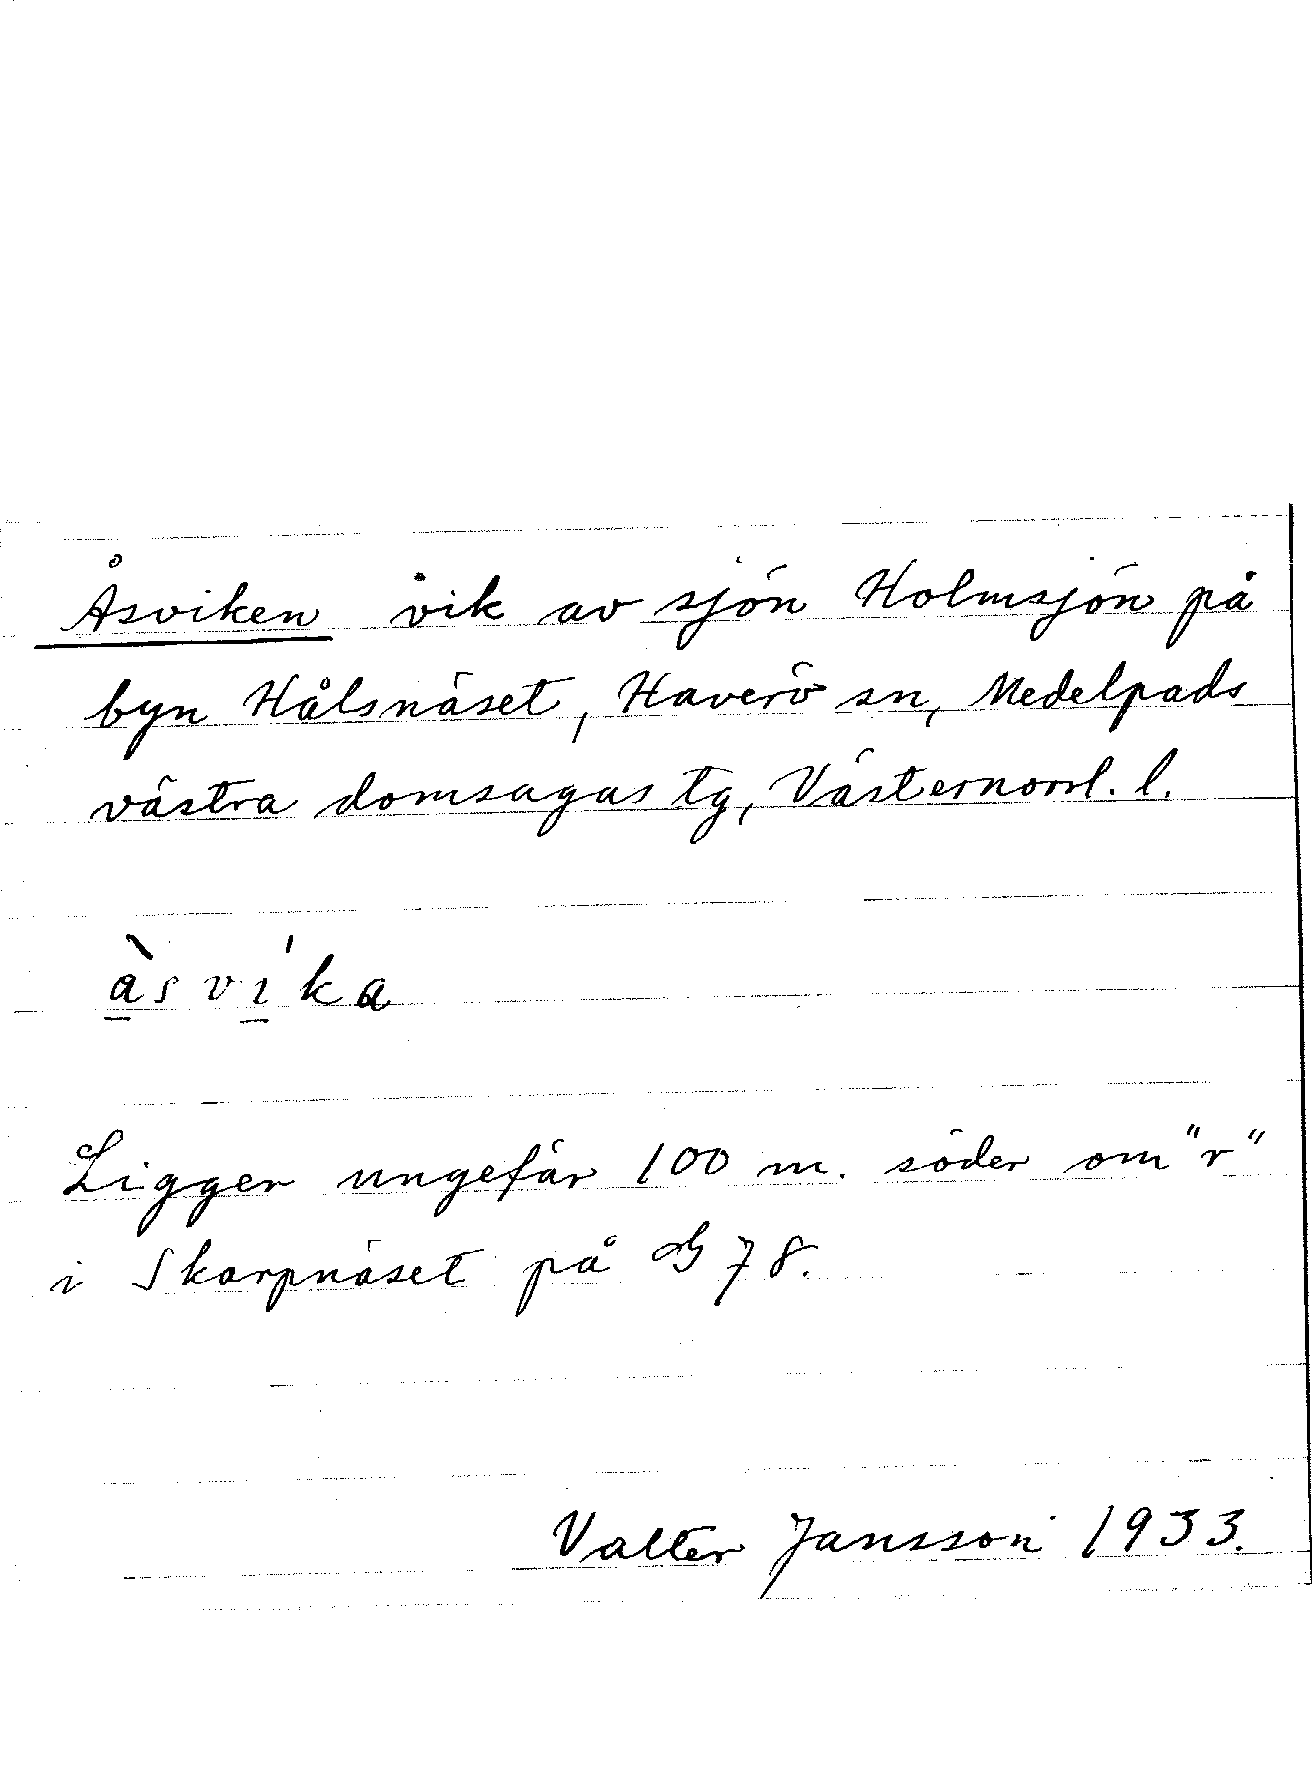 Åsviken vik av sjön Holmsjön på
byn Hålsnäset, Haverö sn, Medelpads
västra domsagas tg, Västernorrl. l.
à̱sví̱ka
Ligger ungefär 100 m. söder om "r"
i Skarpnäset på GB 78.
Valter Jansson 1933.